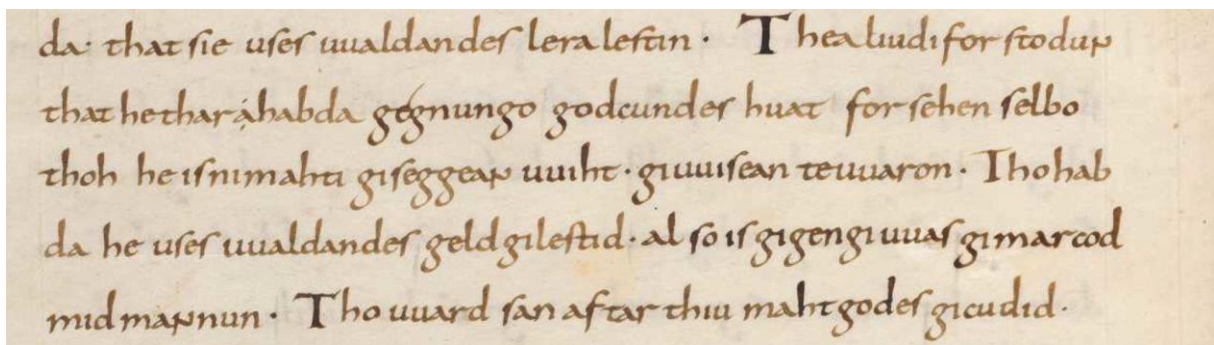 da· that sie uses uualdandes lera lestin · Thea liudi for stodun
that he thar ahabda gegnungo godcundes huat for sehen selbo
thoh he is ni mahti giseggean uuiht · giuuisean te uuaron · Tho hab
da he uses uualdandes geld gilestid · al so is gigengi uuas gimarcod
mid mannun · Tho uuard san aftar thiu maht godes gicudid ·